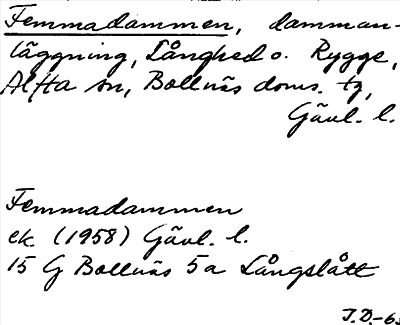 Femmadammen, damman-
läggning, Långhed o. Rygge,
Alfta sn, Bollnäs doms. tg,
Gävl. l.
Femmadammen
ek. (1958) Gävl. l.
15 G Bollnäs 5a Långslått
J.D.-63